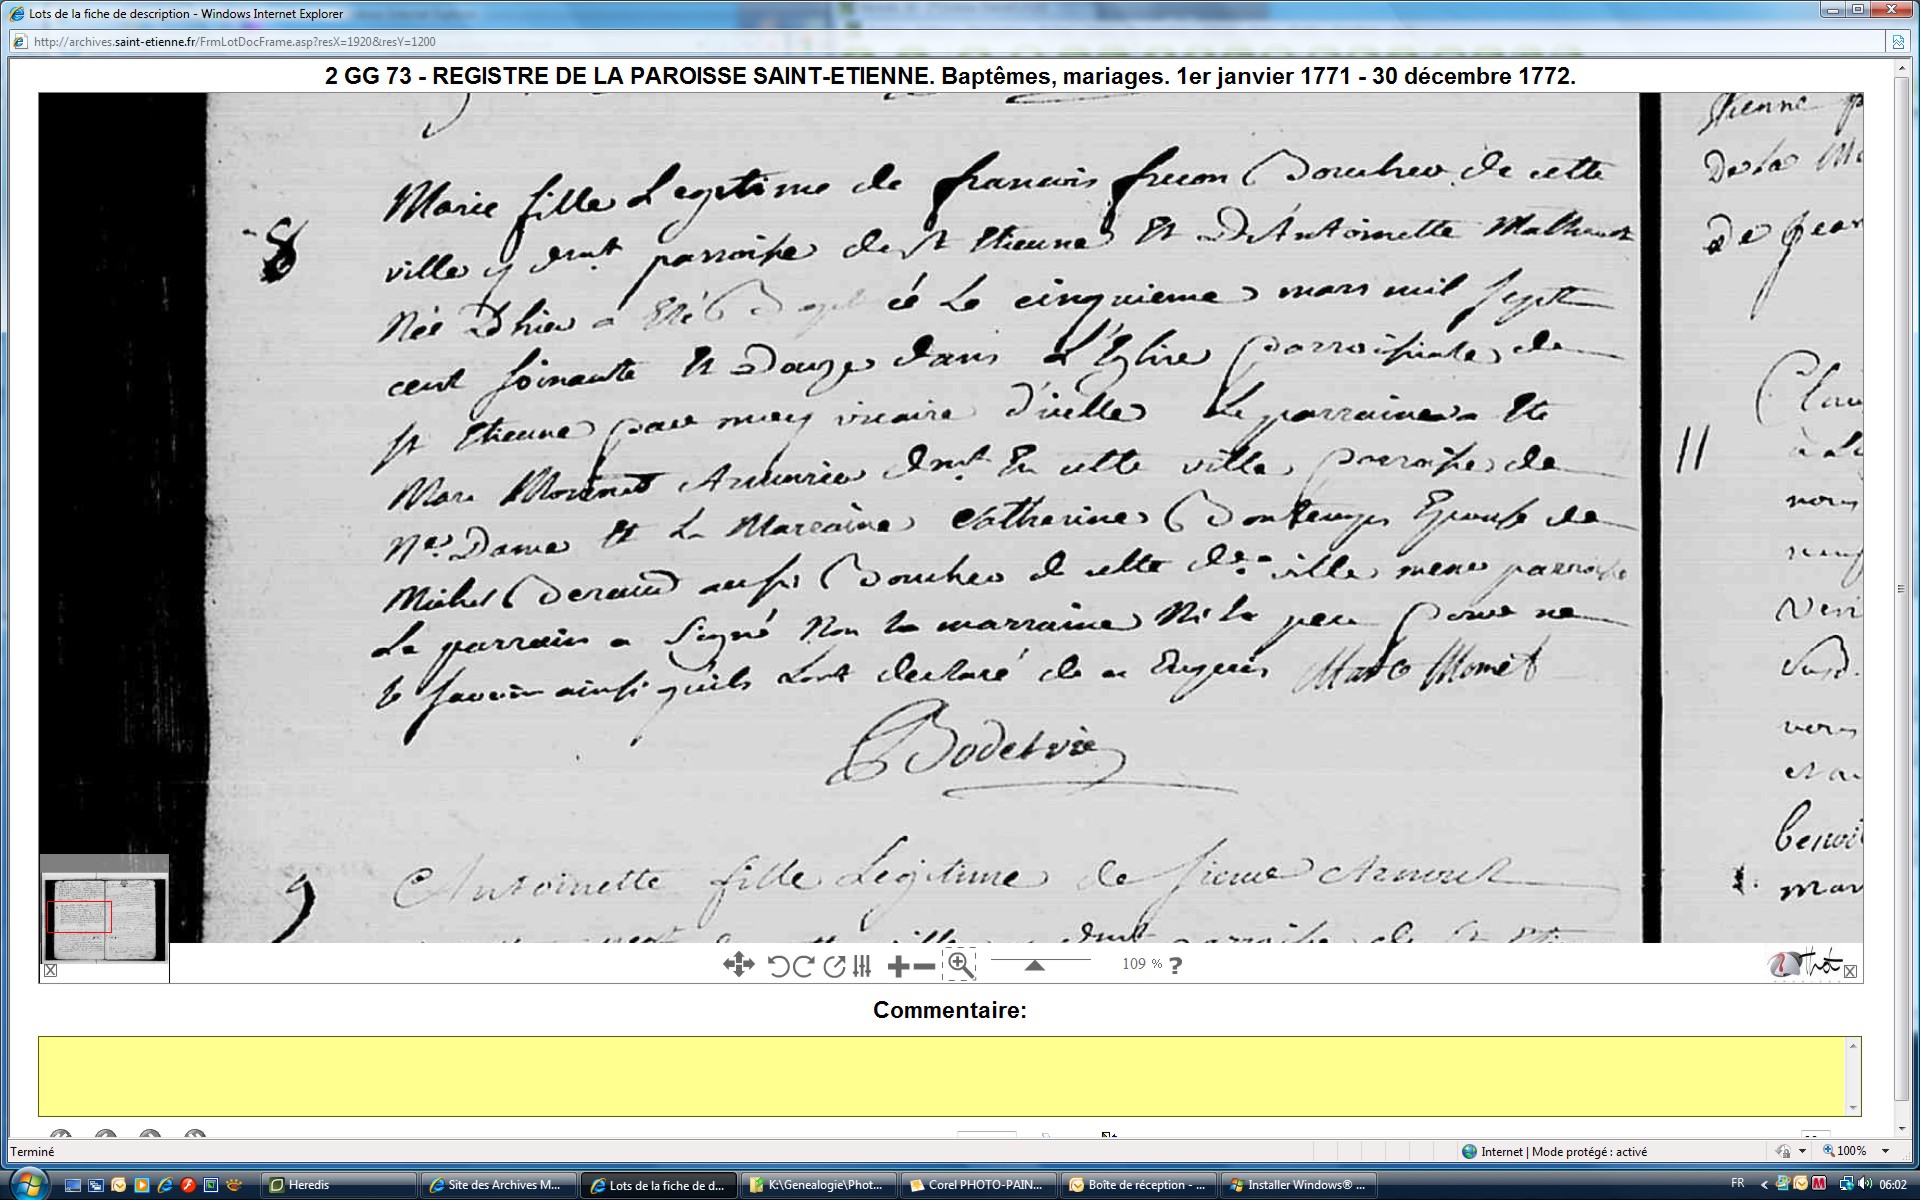 Lots de la fiche de description - Windows Internet Explorer
http://archives.saint-etienne.fr/FrmLotDocFrame.asp?resX=1920&resY=1200
2 GG 73 - REGISTRE DE LA PAROISSE SAINT-ETIENNE. Baptêmes, mariages. 1er janvier 1771 - 30 décembre 1772.
8
Marie fille Legitime de francois frecon Boucher de cette
ville y demt parroisse de st Etienne Et D'Antoinette
Née D'hier a Eté le cinquieme mars mil sept
cent soixante Et Douze dans L'Eglise parroissiale de
st Etienne par moy vicaire d'icelle Le parrain a Eté
Marc Momet Armurier demt En cette ville parroisse de
Ne Dame Et La Marraine Catherine Epouse de
Michel aussi Boucher de cette de ville meme parroisse
Le parrain a signé Non la marraine Ni le pere pour ne
le savoir ainsi quils L'ont declaré de ce Enquis Marc Momet
Bodet vic
9
Antoinette fille Legitime de sieur
11
tienne
De la
De Jean
Clau
nous
benoi
mar
109 % ?
Commentaire:
Terminé
Internet | Mode protégé : activé
100%
Heredis
Site des Archives M...
Lots de la fiche de d...
K:\Genealogie\Phot...
Corel PHOTO-PAIN...
Boîte de réception - ...
Installer Windows® ...
FR
06:02